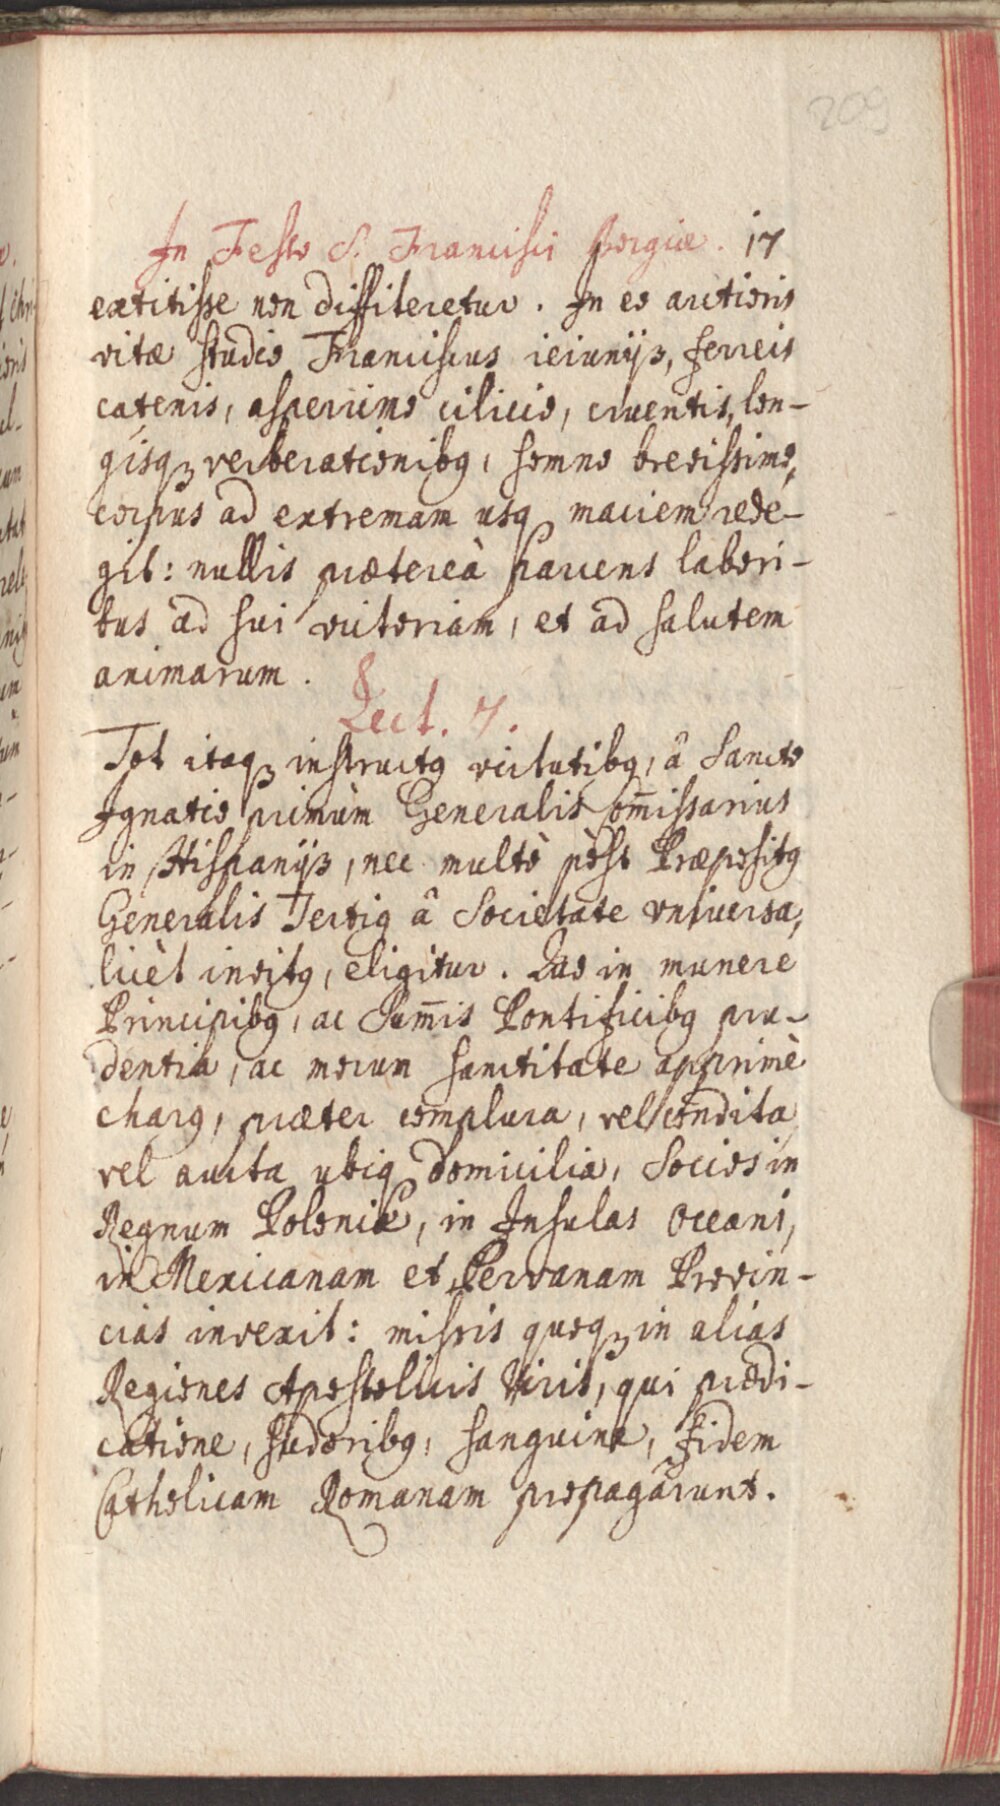 209
In Festo S. Francisci Borgiæ. 17
extitisse non diffiteretur. In eo arctioris
vitæ studio Franciscus ieiunijs, ferreis
catenis, asperrimo cilicio, cruentis, lon-
gisqꝫ verberationibꝰ, somno brevissimo,
corpus ad extremam usqꝫ maciem rede-
git: nullis prætereà parcens labori-
bus ad sui victoriam, et ad salutem
animarum.
§
Lect. 7.
Tot itaqꝫ instructꝰ virtutibꝰ, â Sancto
Ignatio primùm Generalis Com̄issarius
in Hispanijs, nec multò pòst Præpositꝰ
Generalis Tertiꝰ â Societate vniversa,
licèt invitꝰ, eligitur. Quo in munere
Principibꝰ, ac Sum̄is Pontificibꝰ pru-
dentia, ac morum sanctitate apprimè
charꝰ, præter complura, vel condita
vel aucta ubiqꝫ domicilia, Socios in
Regnum Poloniæ, in Insulas Oceani,
in Mexicanam et Pervanam Provin-
cias invexit: missis quoqꝫ in alias
Regiones Apostolicis Viris, qui prædi-
catione, sudoribꝰ, sanguine, fidem
Catholicam Romanam propagârunt.